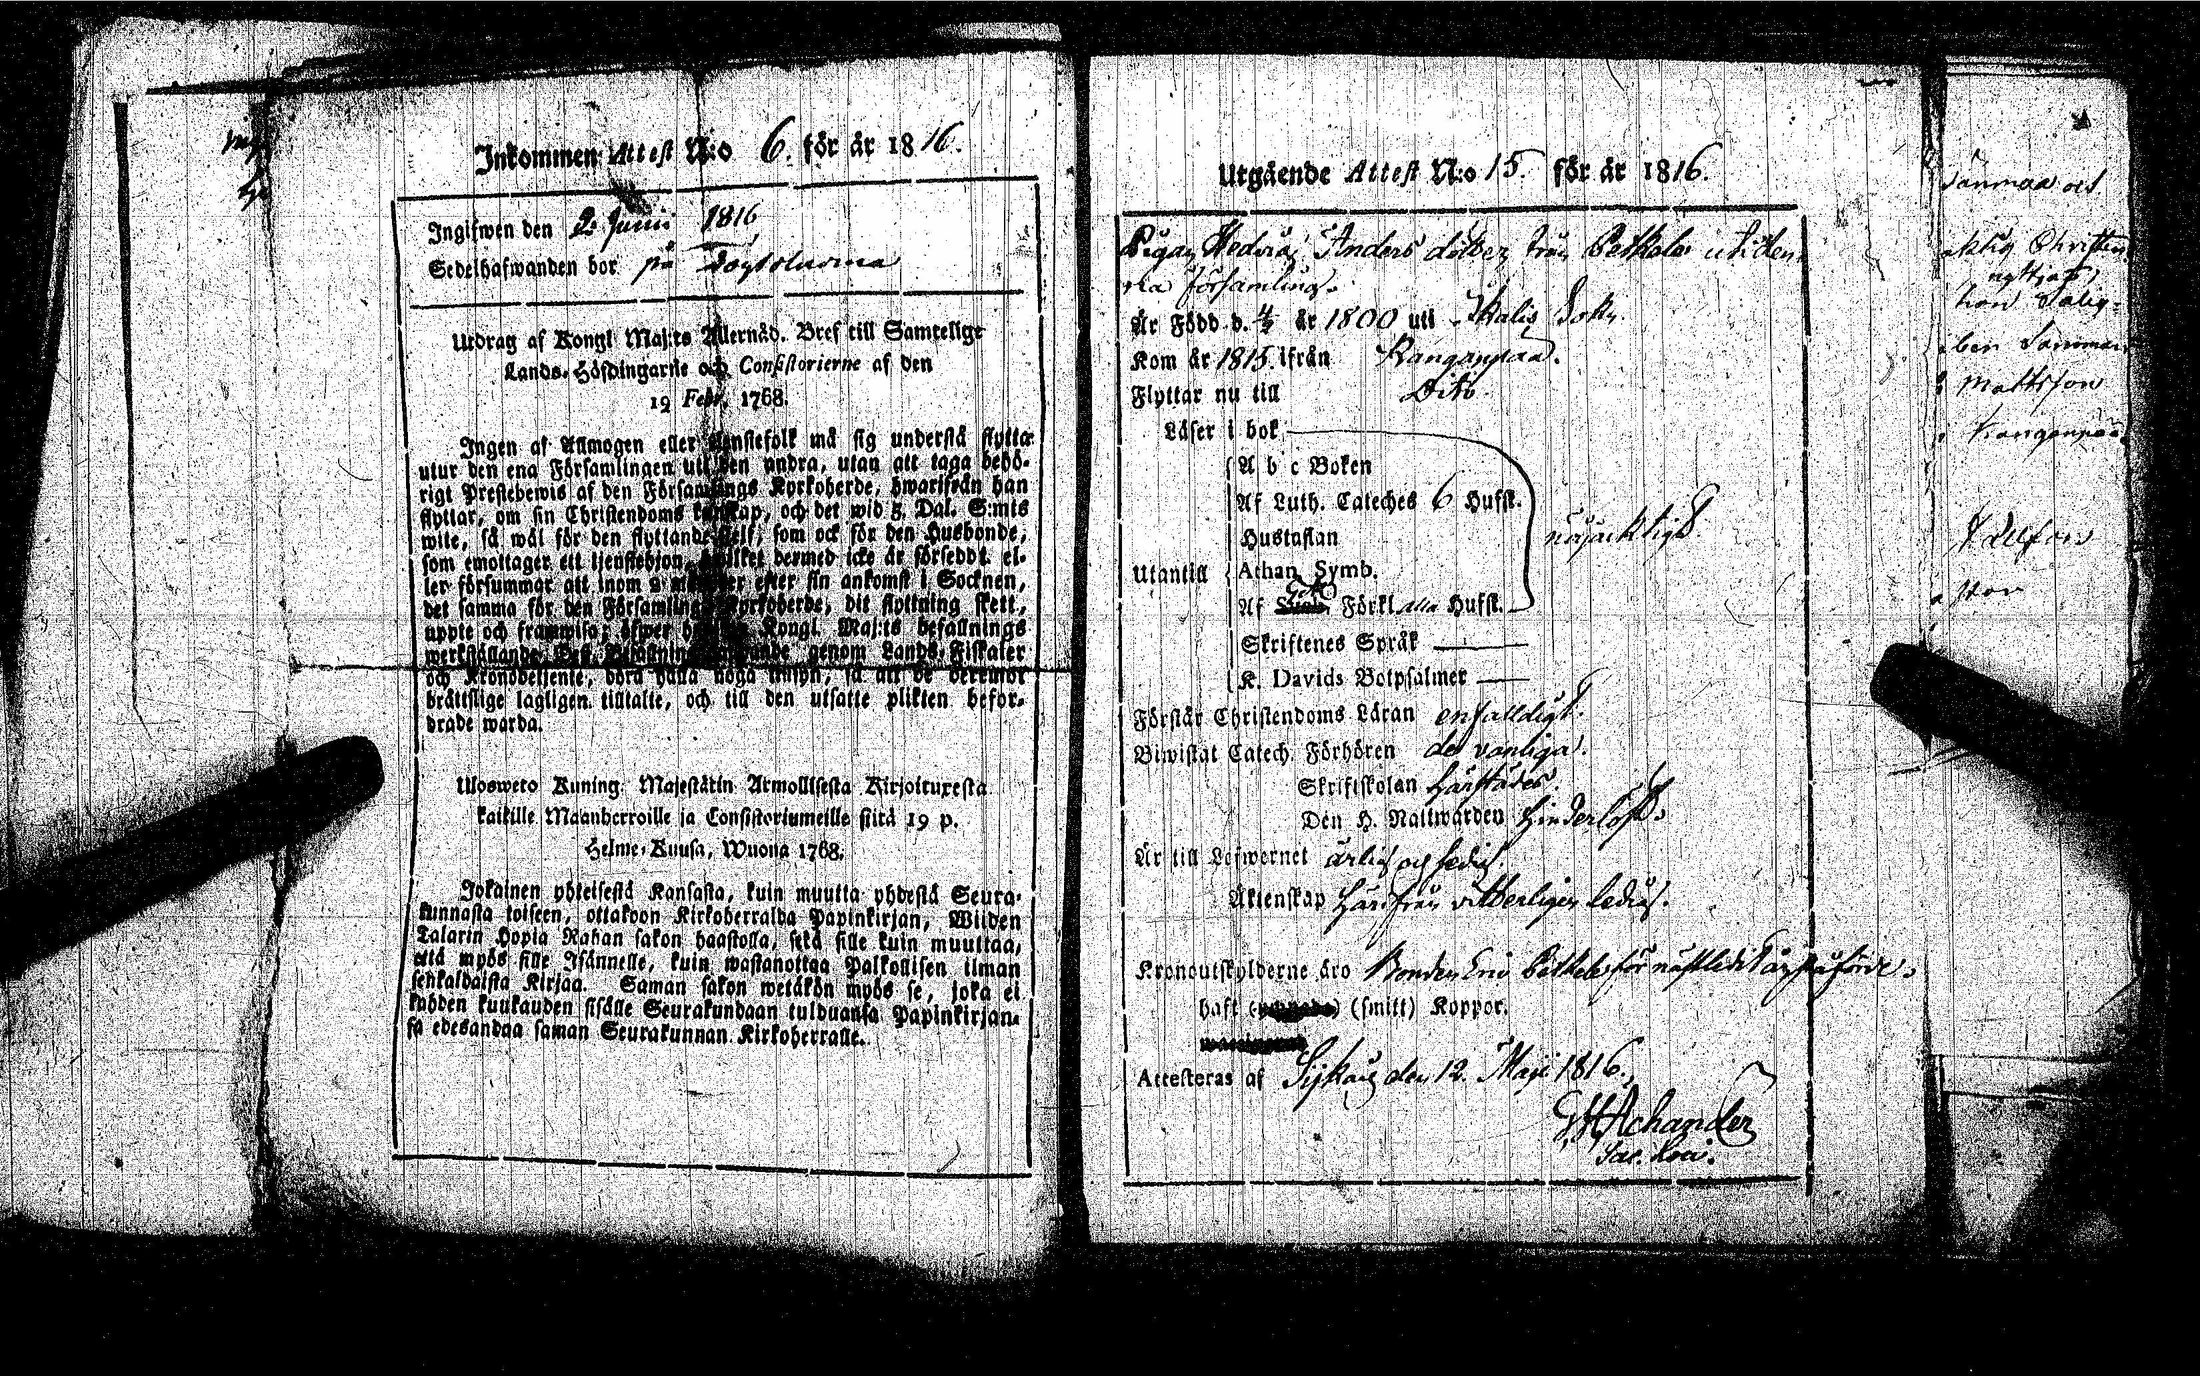 Inkommen Attest N:o 6. för år 1816.
Ingifwen den 2 Junii 1816
Sedelhafwanden bor på
Utdrag af Kongl Maj:ts Allernåd. Bref till Samtelige
Lands-Höfdingarne och Consistorierne af den
19 Febr. 1768.
Ingen af Allmogen eller tjenstefolk må sig understå flytta
utur den ena Församlingen uti den andra, utan att taga behö-
rigt Prestebewis af den Församlings Kyrkoherde, hwarifrån han
flyttar, om sin Christendoms kunskap, och det wid 3. Dal. S:mts
wite, så wäl för den flyttande self, som ock för den Husbonde,
som emottager ett tjenstehjon, hwilket dermed icke är försedt. el-
ler försummar att inom 2 månader efter sin ankomst i Socknen,
det samma för den Församlings Kyrkoherde, dit flyttning skett,
uppte och framwisa; öfwer Kongl. Maj:ts befallnings
werkställande Des. Befallningshafwande genom Lands-Fiskaler
och Kronobetjente, böra hålla noga insyn, så att de deremot
bråttslige lagligen tilltalte, och till den utsatte plikten befor-
drade warda.
Uloswето Kuning. Majestätin Armollisesta Kirjoituxesta
kaikille Maanherroille ja Consistoriumeille siitä 19 p.
Helme-Kuusa, Wuona 1768.
Jokainen yhteisestä Kansasta, kuin muutta yhdestä Seura-
kunnasta toiseen, ottakoon Kirkoherralda Papinkirjan, Wiiden
Talarin Hopia Rahan sakon haastolla, sekä sille kuin muuttaa,
että myös sille Isännelle, kuin wastanottaa Palkollisen ilman
senkaldaista Kirjaa. Saman sakon wetäkön myös se, joka ei
kahden kuukauden sisälle Seurakundaan tulduansa Papinkirjan-
sa edesandaa saman Seurakunnan Kirkoherralle.
Utgående Attest N:o 15. för år 1816.
Pigan Hedvig Anders dotter från Peskale uti den
na församling.
Är Född d. år 1800 uti Ikalis Sokn
Kom år 1815. ifrån Kanganpää.
Flyttar nu till Dito
Läser i bok
A b c Boken
Af Luth. Cateches 6 Hufst.
Hustaflan
nöjacktigt
Utantill Athan. Symb.
Af Förkl. alla Hufst.
Skriftenes Språk
K. Davids Botpsalmer
Förstår Christendoms Läran enfalldigt.
Biwistat Catech. Förhören de vanliga.
Skriftskolan härstädes.
Den H. Nattwarden hinderlöst.
Är till Lefwernet ärlig och sedig.
Äktenskap härifrån vitterligen ledig.
Kronoutskylderne äro Bonden Eric Peskale för nästledit år påförde.
haft (smitt) Koppor.
Attesteras af den 12. Maji 1816.
Achander
Sac.
och
Christen
hon Salig-
Mattsson
Kangenpää